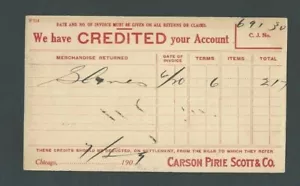 DATE AND NO. OF INVOICE MUST BE GIVEN ON ALL RETURNS OR CLAIMS.
We have CREDITED your Account
C. J. No.
MERCHANDISE RETURNED
DATE OF INVOICE
TERMS
ITEMS
TOTAL
4/20 6 217
THESE CREDITS SHOULD BE DEDUCTED, ON SETTLEMENT, FROM THE BILLS TO WHICH THEY REFER.
Chicago, 190
CARSON PIRIE SCOTT & CO.